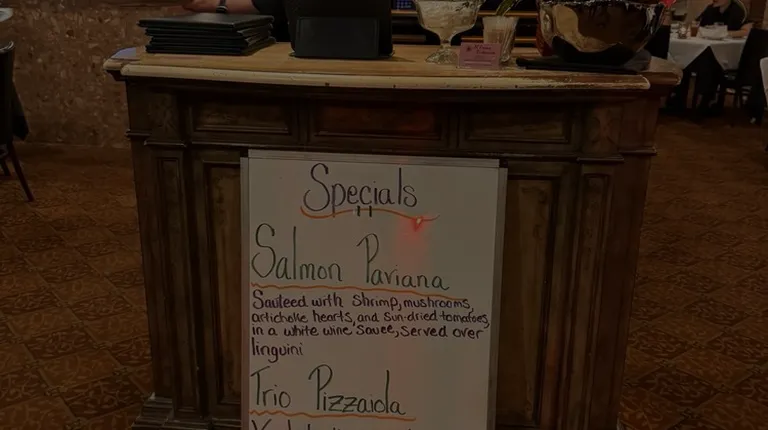 Specials
Salmon Paviana
Sauteed with Shrimp, mushrooms,
artichoke hearts, and sun-dried tomatoes,
in a white wine sauce, served over
linguini
Trio Pizzaiola